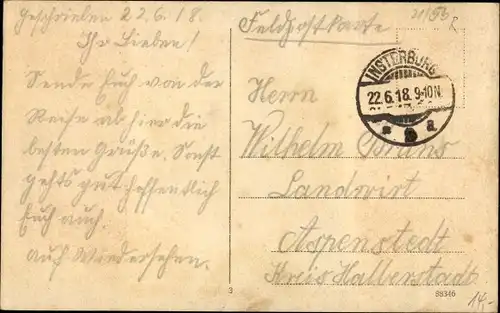 geschrieben 22.6.18.
Ihr Lieben!
Sende Euch von der
Reise ab hier die
besten Grüße. Sonst
gehts gut hoffentlich
Euch auch.
auf Wiedersehen.
Feldpostkarte
21/53
INSTERBURG
22.6.18. 9-10N.
* a
Herrn
Wilhelm Bruns
Landwirt
Aspenstedt
Kreis Halberstadt
3
88346
14,-